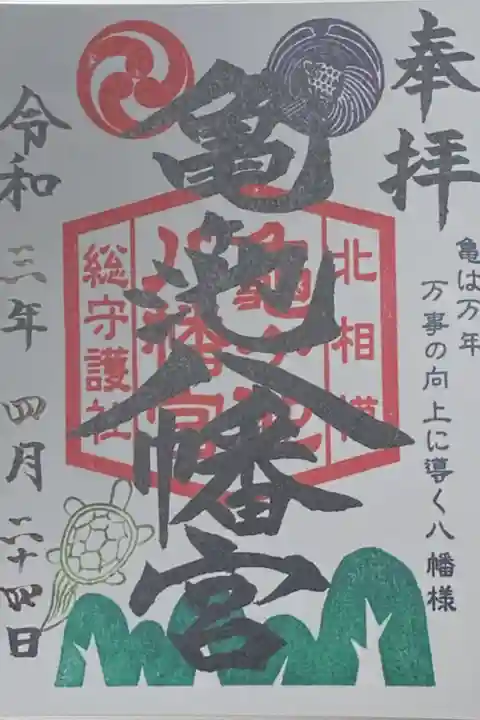 奉拝
亀は万年
万事の向上に導く八幡様
北相模
亀ヶ池
八幡宮
総守護社
亀ヶ池八幡宮
令和三年四月二十四日